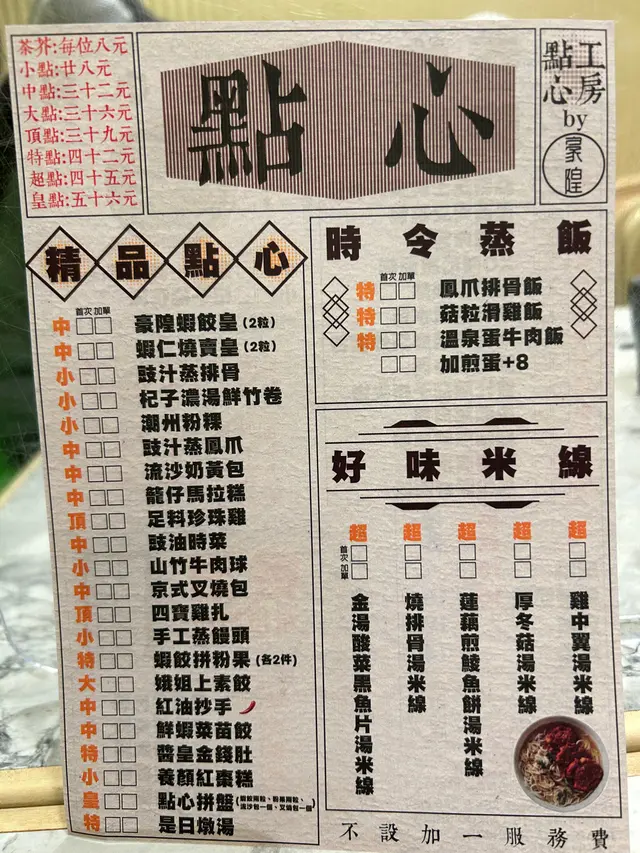 茶芥:每位八元
小點:廿八元
中點:三十二元
大點:三十六元
頂點:三十九元
特點:四十二元
超點:四十五元
皇點:五十六元
點心
點心工房
by
豪隍
精品點心
首次 加單
中 豪隍蝦餃皇(2粒)
中 蝦仁燒賣皇(2粒)
小 豉汁蒸排骨
小 杞子濃湯鮮竹卷
小 潮州粉粿
中 豉汁蒸鳳爪
中 流沙奶黃包
中 龍仔馬拉糕
頂 足料珍珠雞
中 豉油時菜
小 山竹牛肉球
中 京式叉燒包
頂 四寶雞扎
小 手工蒸饅頭
特 蝦餃拼粉果(各2件)
大 嬌姐上素餃
中 紅油抄手
中 鮮蝦菜苗餃
特 醬皇金錢肚
小 養顏紅棗糕
皇 點心拼盤(蝦餃兩粒、粉果兩粒、
流沙包一個、叉燒包一個)
特 是日燉湯
時令蒸飯
首次 加單
特 鳳爪排骨飯
特 菇粒滑雞飯
特 溫泉蛋牛肉飯
加煎蛋+8
好味米線
首次
加單
超 金湯酸菜黑魚片湯米線
超 燒排骨湯米線
超 蓮藕煎鯪魚餅湯米線
超 厚冬菇湯米線
超 雞中翼湯米線
不設加一服務費